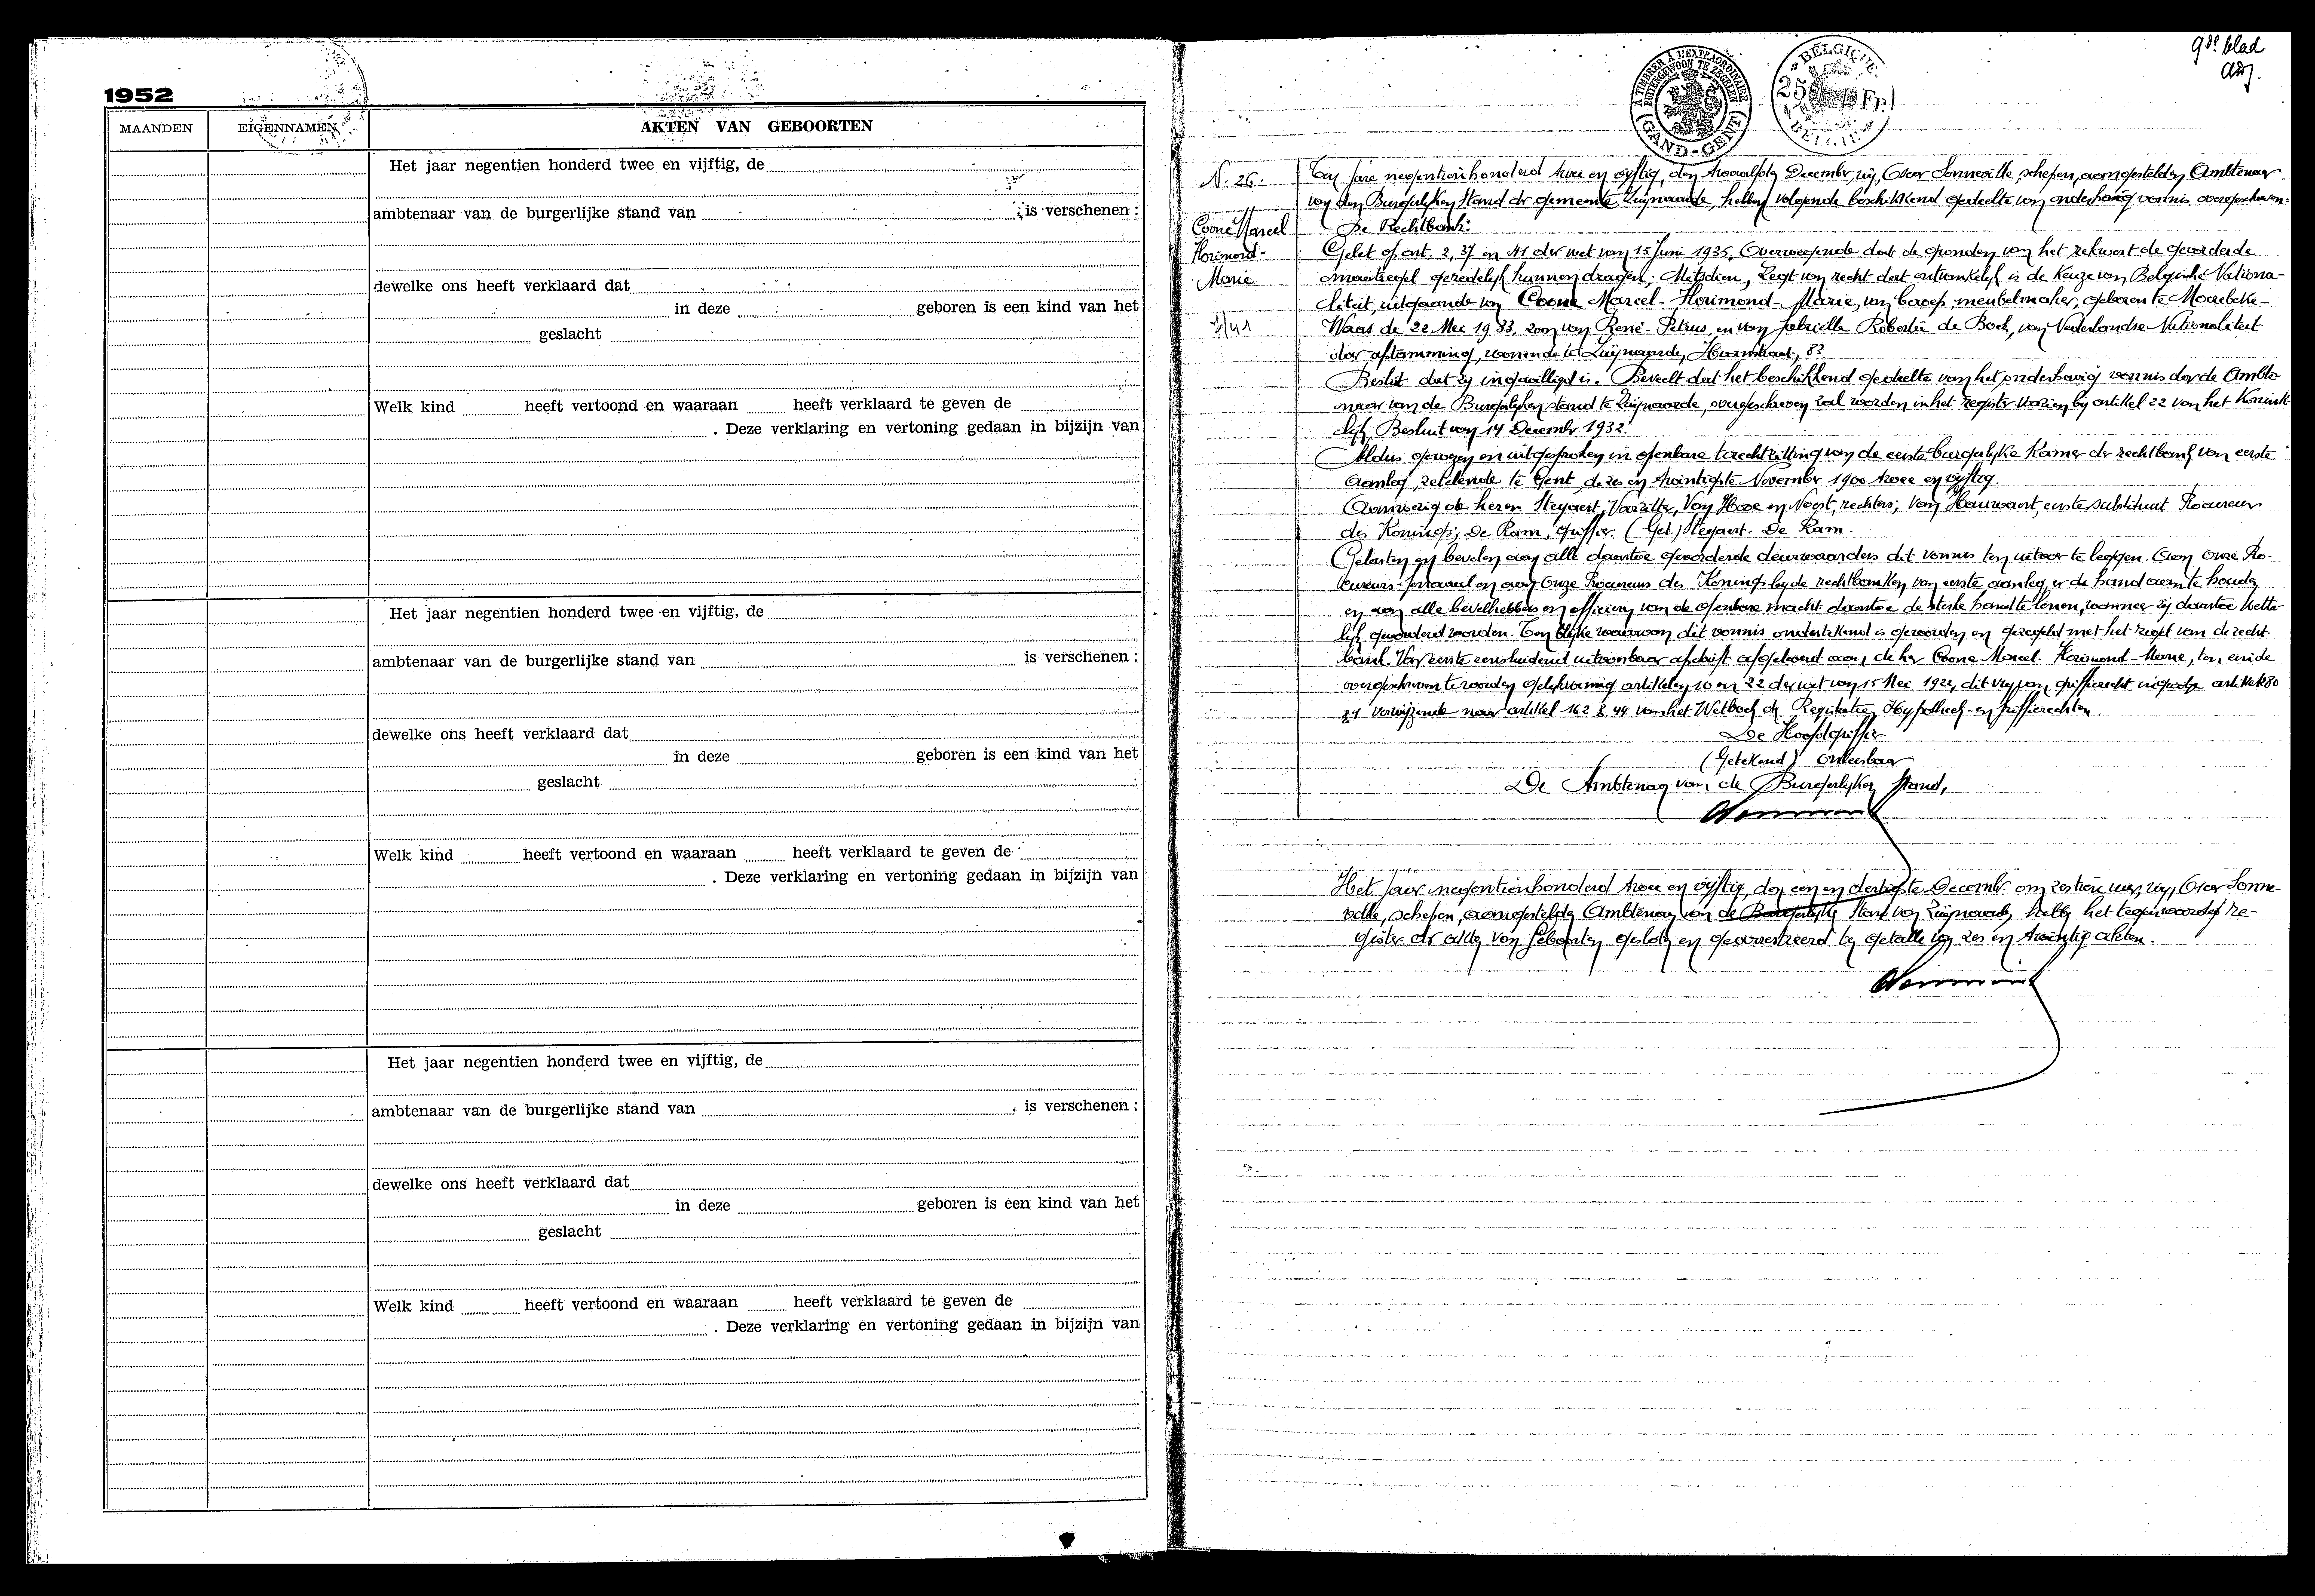 1952
MAANDEN
EIGENNAMEN
AKTEN VAN GEBOORTEN
Het jaar negentien honderd twee en vijftig, de
ambtenaar van de burgerlijke stand van is verschenen :
dewelke ons heeft verklaard dat
in deze geboren is een kind van het
geslacht
Welk kind heeft vertoond en waaraan heeft verklaard te geven de
. Deze verklaring en vertoning gedaan in bijzijn van
Het jaar negentien honderd twee en vijftig, de
ambtenaar van de burgerlijke stand van is verschenen :
dewelke ons heeft verklaard dat
in deze geboren is een kind van het
geslacht
Welk kind heeft vertoond en waaraan heeft verklaard te geven de
. Deze verklaring en vertoning gedaan in bijzijn van
Het jaar negentien honderd twee en vijftig, de
ambtenaar van de burgerlijke stand van is verschenen :
dewelke ons heeft verklaard dat
in deze geboren is een kind van het
geslacht
Welk kind heeft vertoond en waaraan heeft verklaard te geven de
. Deze verklaring en vertoning gedaan in bijzijn van
blad
A TIMBRER A L'EXTRAORDINAIRE
BUITENGEWOON TE ZEGELEN
(GAND-GENT)
BELGIQUE
25 Fr.
BELGIE
N. 26.
Coone Marcel
Florimond-
Marie
Ten jare negentienhonderd twee en vijftig, den twaalfden December, wij, Oscar Sonneville, schepen, aangestelden Ambtenaar
van den Burgerlijken Stand der gemeente Zwijnaarde, hebben volgende beschikkend gedeelte van onderhavig vonnis overgeschreven:
De Rechtbank:
Gelet op art. 2, 37 en 41 der wet van 15 Juni 1935, Overwegende dat de gronden van het rekwest de gevorderde
maatregel geredelijk kunnen dragen; Mitsdien, Zegt van recht dat ontvankelijk is de keuze van Belgische Nationa-
liteit, uitgaande van Coone Marcel-Florimond-Marie, van beroep, meubelmaker, geboren te Moerbeke-
Waas de 22 Mei 1933, zoon van René-Petrus, en van Gabrielle Robertie de Bock, van Nederlandse Nationaliteit
door afstamming, wonende te Zwijnaarde, 83
Beslist dat zij ingewilligd is. Beveelt dat het beschikkend gedeelte van het onderhavig vonnis door de Ambte-
naar van de Burgerlijken stand te Zwijnaarde, overgeschreven zal worden in het register voorzien bij artikel 22 van het Konink-
lijk Besluit van 14 December 1932.
Aldus gewezen en uitgesproken in openbare terechtzitting van de eerste burgerlijke Kamer der rechtbank van eerste
aanleg, zetelende te Gent, de zes en twintigste November 1900 twee en vijftig.
Aanwezig de heren Steyaert, Voorzitter, Van Hove en Neyt, rechters; van Hauwaert, eerste substituut Procureur
des Konings; De Ram, griffier. (Get.) Steyaert. De Ram.
Gelasten en bevelen aan alle daartoe gevorderde deurwaarders dit vonnis ten uitvoer te leggen. Aan Onze Pro-
cureurs-generaal en aan Onze Procureurs des Konings bij de rechtbanken van eerste aanleg, er de hand aan te houden
en aan alle bevelhebbers en officieren van de openbare macht daartoe de sterke hand te lenen, wanneer zij daartoe wette-
lijk gevorderd worden. Ten blijke waarvan dit vonnis ondertekend is geworden en gezegeld met het zegel van de recht-
bank. Voor eerste eensluidend uitvoerbaar afschrift afgeleverd aan, de her Coone Marcel-Florimond-Marie, ten einde
overgeschreven te worden gelijkvormig artikelen 10 en 22 der wet van 15 Mei 1922, dit vrij van griffierecht ingevolge artikel 280
§1 verwijzende naar artikel 162 § 44 van het Wetboek der Registratie, Hypotheek- en griffierechten.
De Hoofdgriffier
(Getekend) onleesbaar
De Ambtenaar van de Burgerlijken Stand,
Het jaar negentienhonderd twee en vijftig, den een en dertigste December om zestien uur, wij, Oscar Sonne-
ville, schepen, aangestelden Ambtenaar van de Burgerlijke Stand van Zwijnaarde, hebben het tegenwoordig re-
gister der akten van Geboorten gesloten en gearresteerd ten getalle van zes en twintig akten.